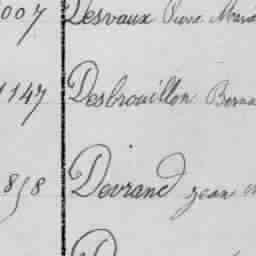 007 Desvaux Pierre Marie
1147 Desbrouillon Berna
858 Devrand Jean